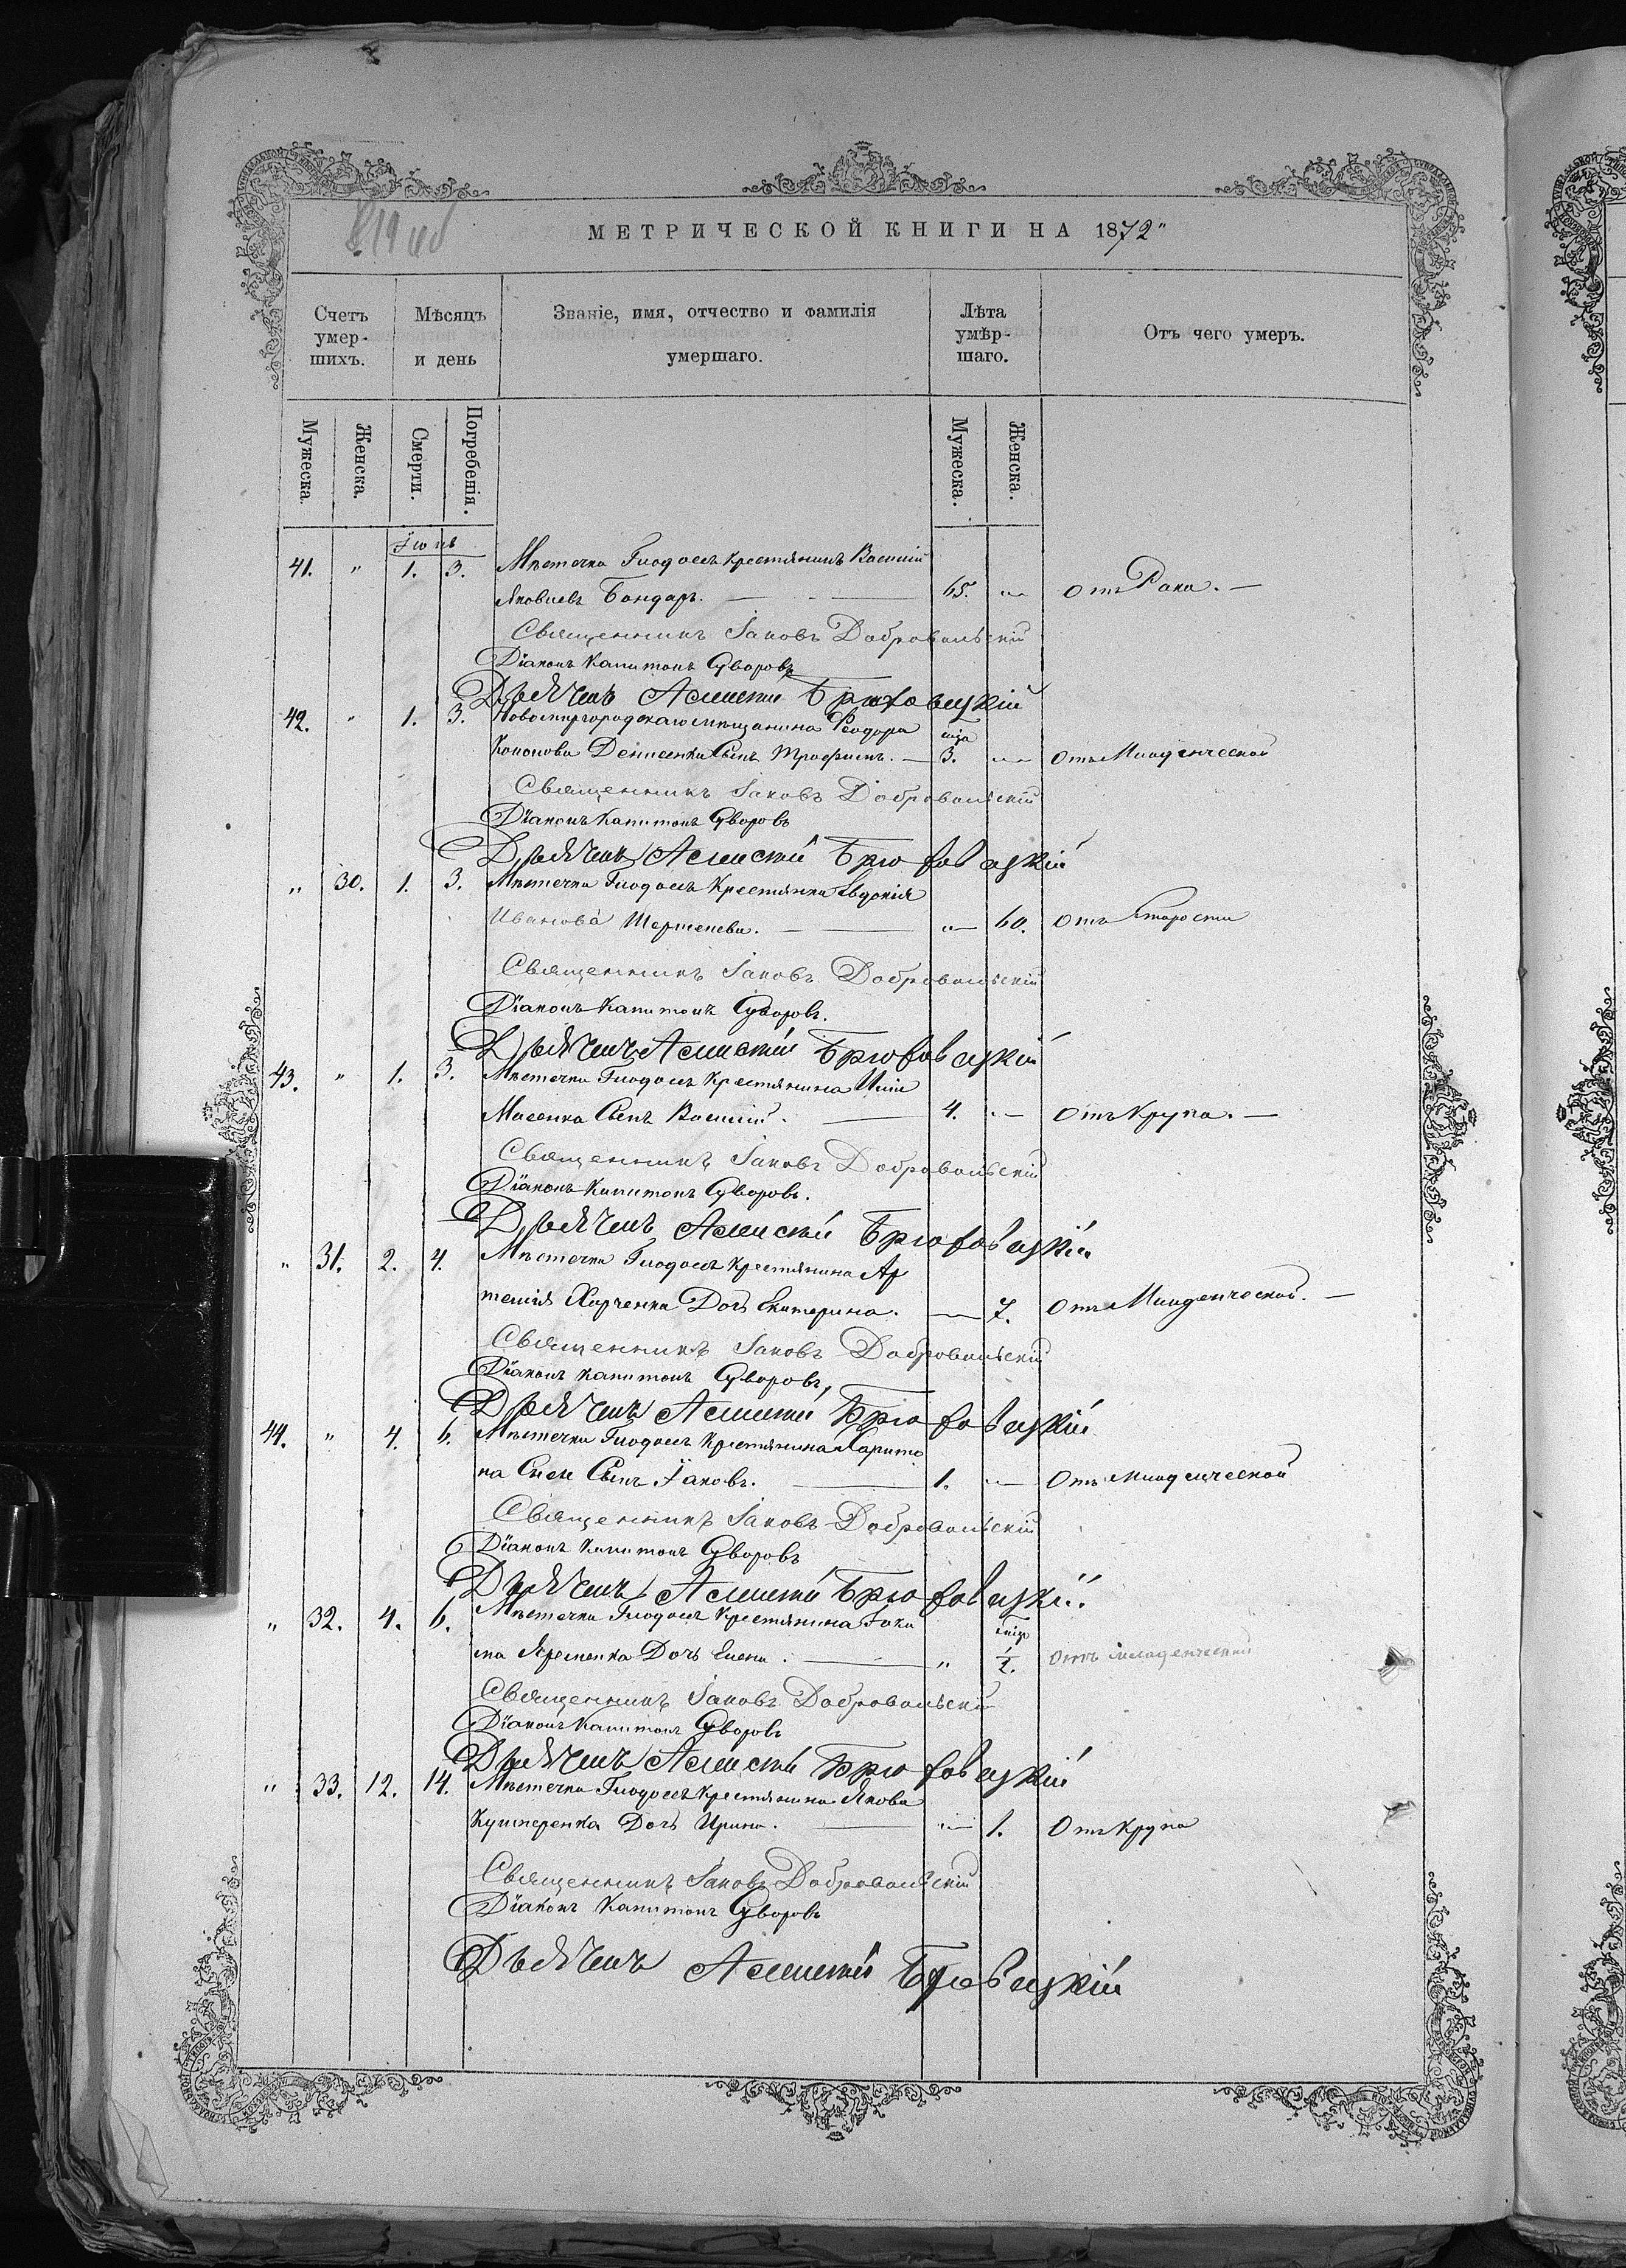 819 об
МЕТРИЧЕСКОЙ КНИГИ НА 1872"
Счетъ умер-шихъ.
Мѣсяцъ и день
Званіе, имя, отчество и фамилія умершаго.
Лѣта умѣр-шаго.
Отъ чего умеръ.
Мужеска.
Женска.
Смерти.
Погребенія.
Мужеска.
Женска.
41. " 1. 3. Мѣстечка Глодосъ крестянинъ Василій
Яковлевъ Бондарь. 65. " отъ Рака.
Священникъ Іаковъ Добровольскій
Діаконъ Капитонъ Суворовъ
Дьячекъ Алексѣй Брюховецкій
42. " 1. 3. Новомиргородскаго мещанина Феодора
Кононова Денисенка Сынъ Трофимъ. 3. " отъ Младенческой
Священникъ Іаковъ Добровольскій
Діаконъ Капитонъ Суворовъ
Дьячекъ Алексѣй Брюховецкій
" 30. 1. 3. Мѣстечка Глодосъ Крестянка Евдокія
Иванова. " 60. отъ Старости
Священникъ Іаковъ Добровольскій
Діаконъ Капитонъ Суворовъ.
Дьячекъ Алексѣй Брюховецкій
43. " 1. 3. Мѣстечка Глодосъ Крестянина Иліи
Сынъ Василій. 4. " отъ Крупа.
Священникъ Іаковъ Добровольскій
Діаконъ Капитонъ Суворовъ.
Дьячекъ Алексѣй Брюховецкій
" 31. 2. 4. Мѣстечка Глодосъ крестянина Ар
темія Харченка Дочь Екатерина. 7. отъ Младенческой.
Священникъ Іаковъ Добровольскій
Діаконъ Капитонъ Суворовъ,
Дьячекъ Алексѣй Брюховецкій
44. " 4. 6. Мѣстечка Глодосъ Крестянина Харито
на Сынъ Іаковъ. 1. " отъ младенческой
Священникъ Іаковъ Добровольскій
Діаконъ Капитонъ Суворовъ
Дьячекъ Алексѣй Брюховецкій
" 32. 4. 6. Мѣстечка Глодосъ Крестянина Іоки
ма Яременка Дочь Елена. " 1/2. отъ младенческой
Священникъ Іаковъ Добровольскій
Діаконъ Капитонъ Суворовъ
Дьячекъ Алексѣй Брюховецкій
" 33. 12. 14. Мѣстечка Глодосъ крестянина Якова
Кушнеренка Дочь Ирина. " 1. отъ Крупа
Священникъ Іаковъ Добровольскій
Діаконъ Капитонъ Суворовъ
Дьячекъ Алексѣй Брюховецкій